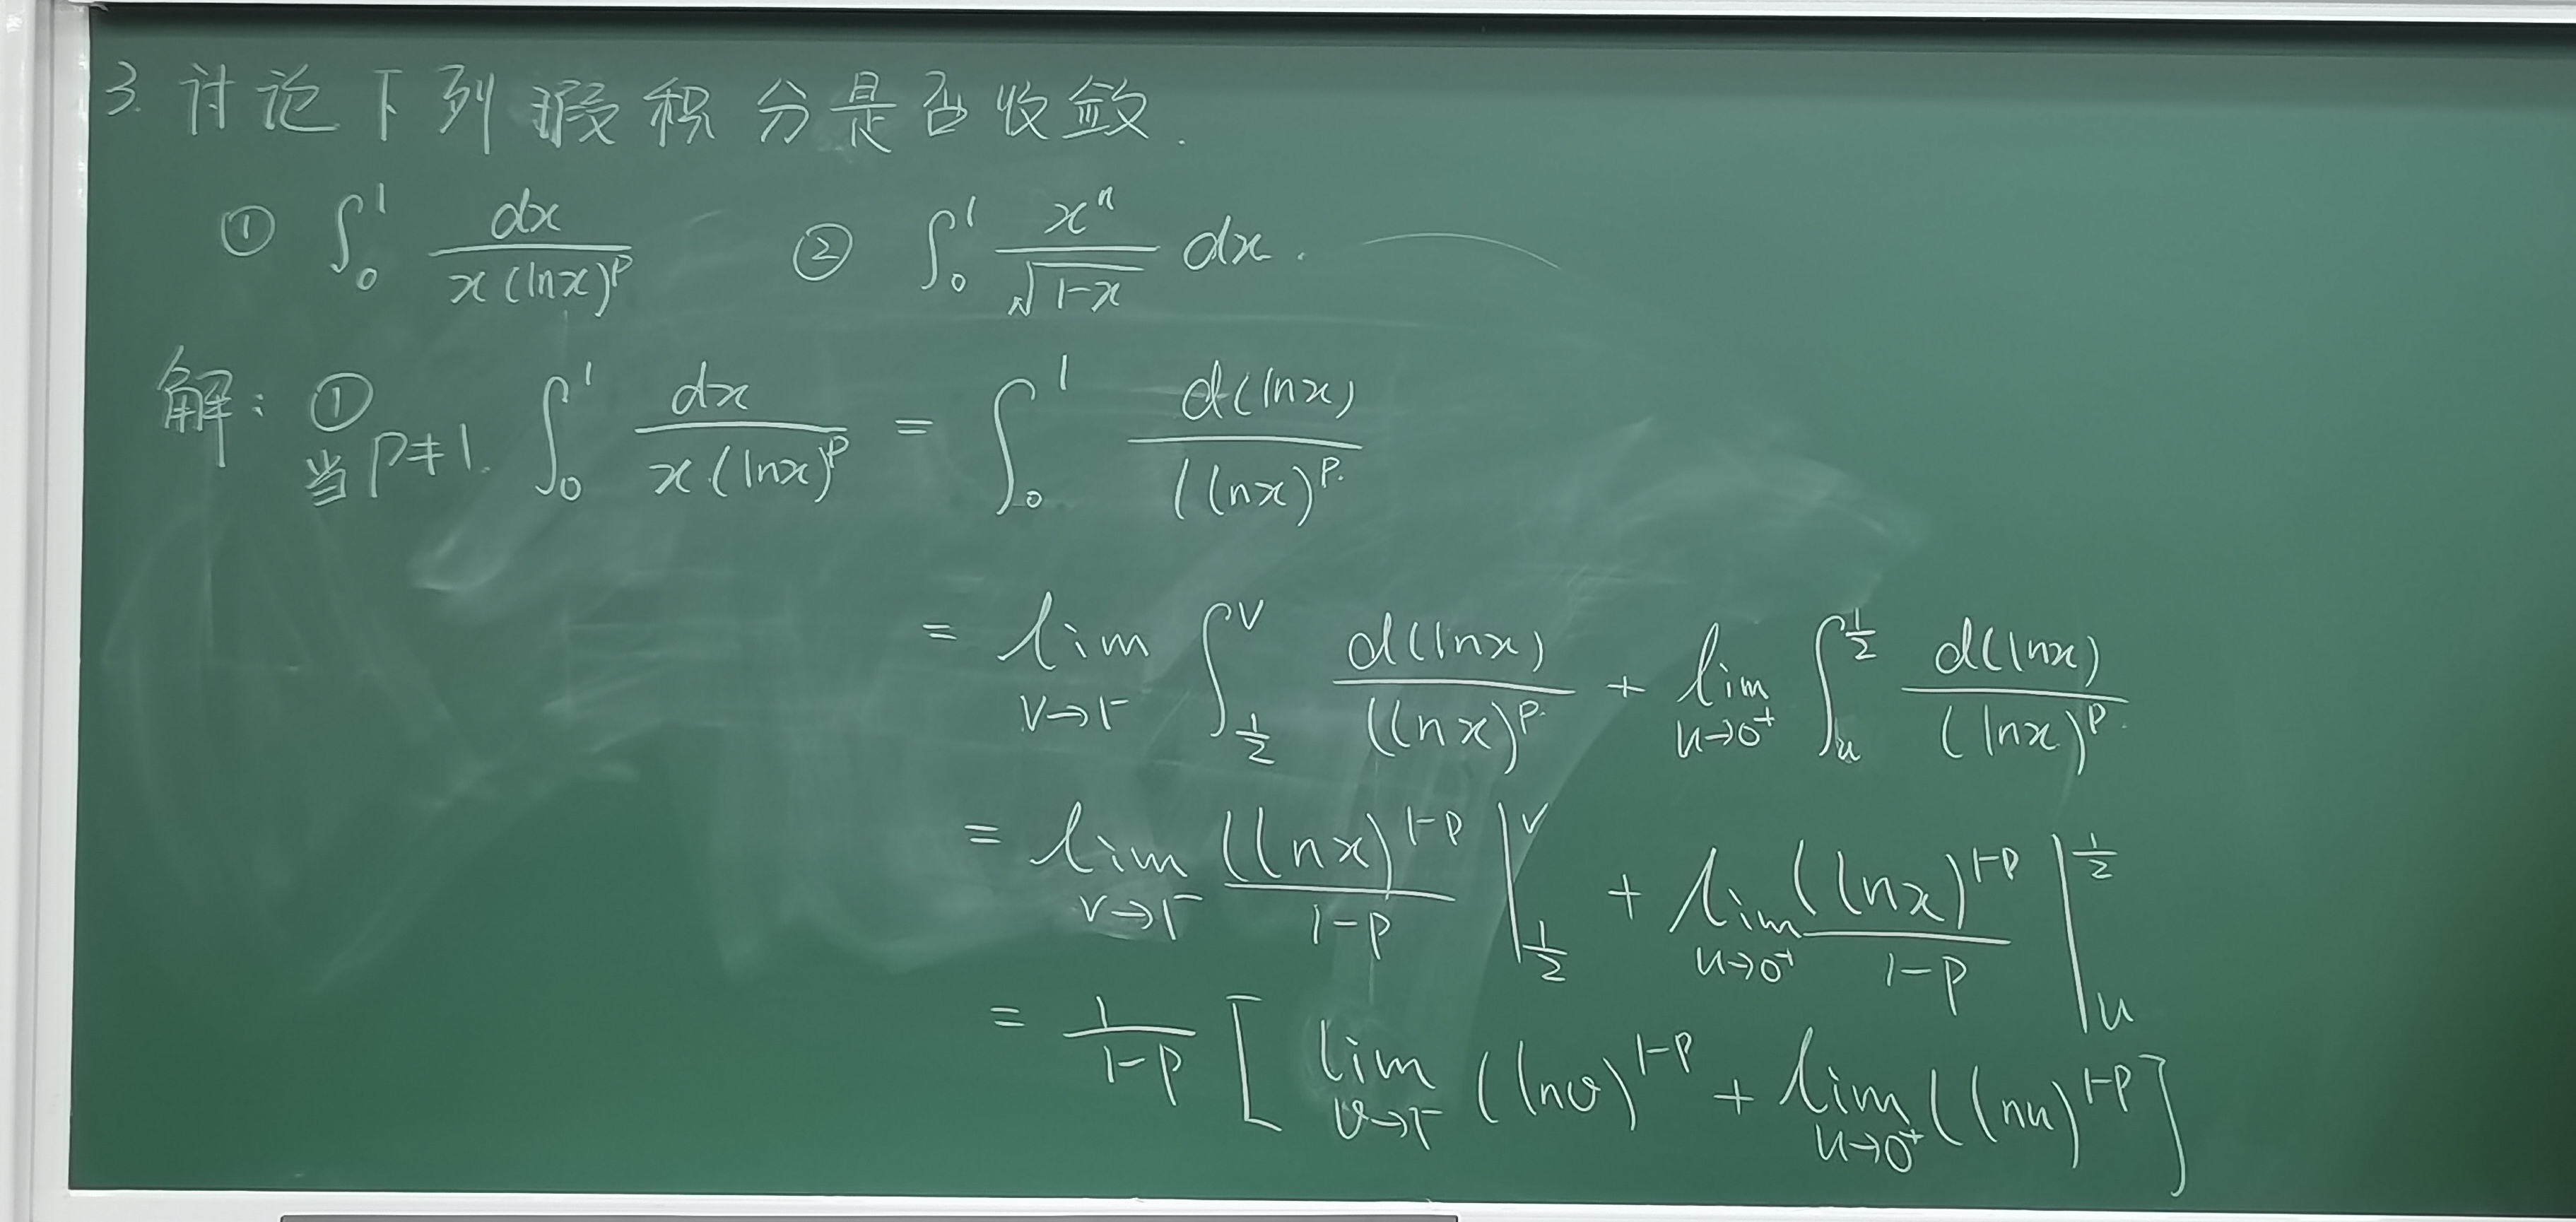 3. 讨论下列瑕积分是否收敛.
① ∫₀¹ dx/(x(lnx)^p) ② ∫₀¹ x^n/√(1-x) dx.
解: ①
当p≠1. ∫₀¹ dx/(x(lnx)^p) = ∫₀¹ d(lnx)/(lnx)^p.
= lim_{v→1⁻} ∫_{1/2}^{v} d(lnx)/(lnx)^p. + lim_{u→0⁺} ∫_{u}^{1/2} d(lnx)/(lnx)^p.
= lim_{v→1⁻} (lnx)^{1-p}/(1-p) |_{1/2}^{v} + lim_{u→0⁺} (lnx)^{1-p}/(1-p) |_{u}^{1/2}
= 1/(1-p) [ lim_{v→1⁻} (lnv)^{1-p} + lim_{u→0⁺} (lnu)^{1-p} ]